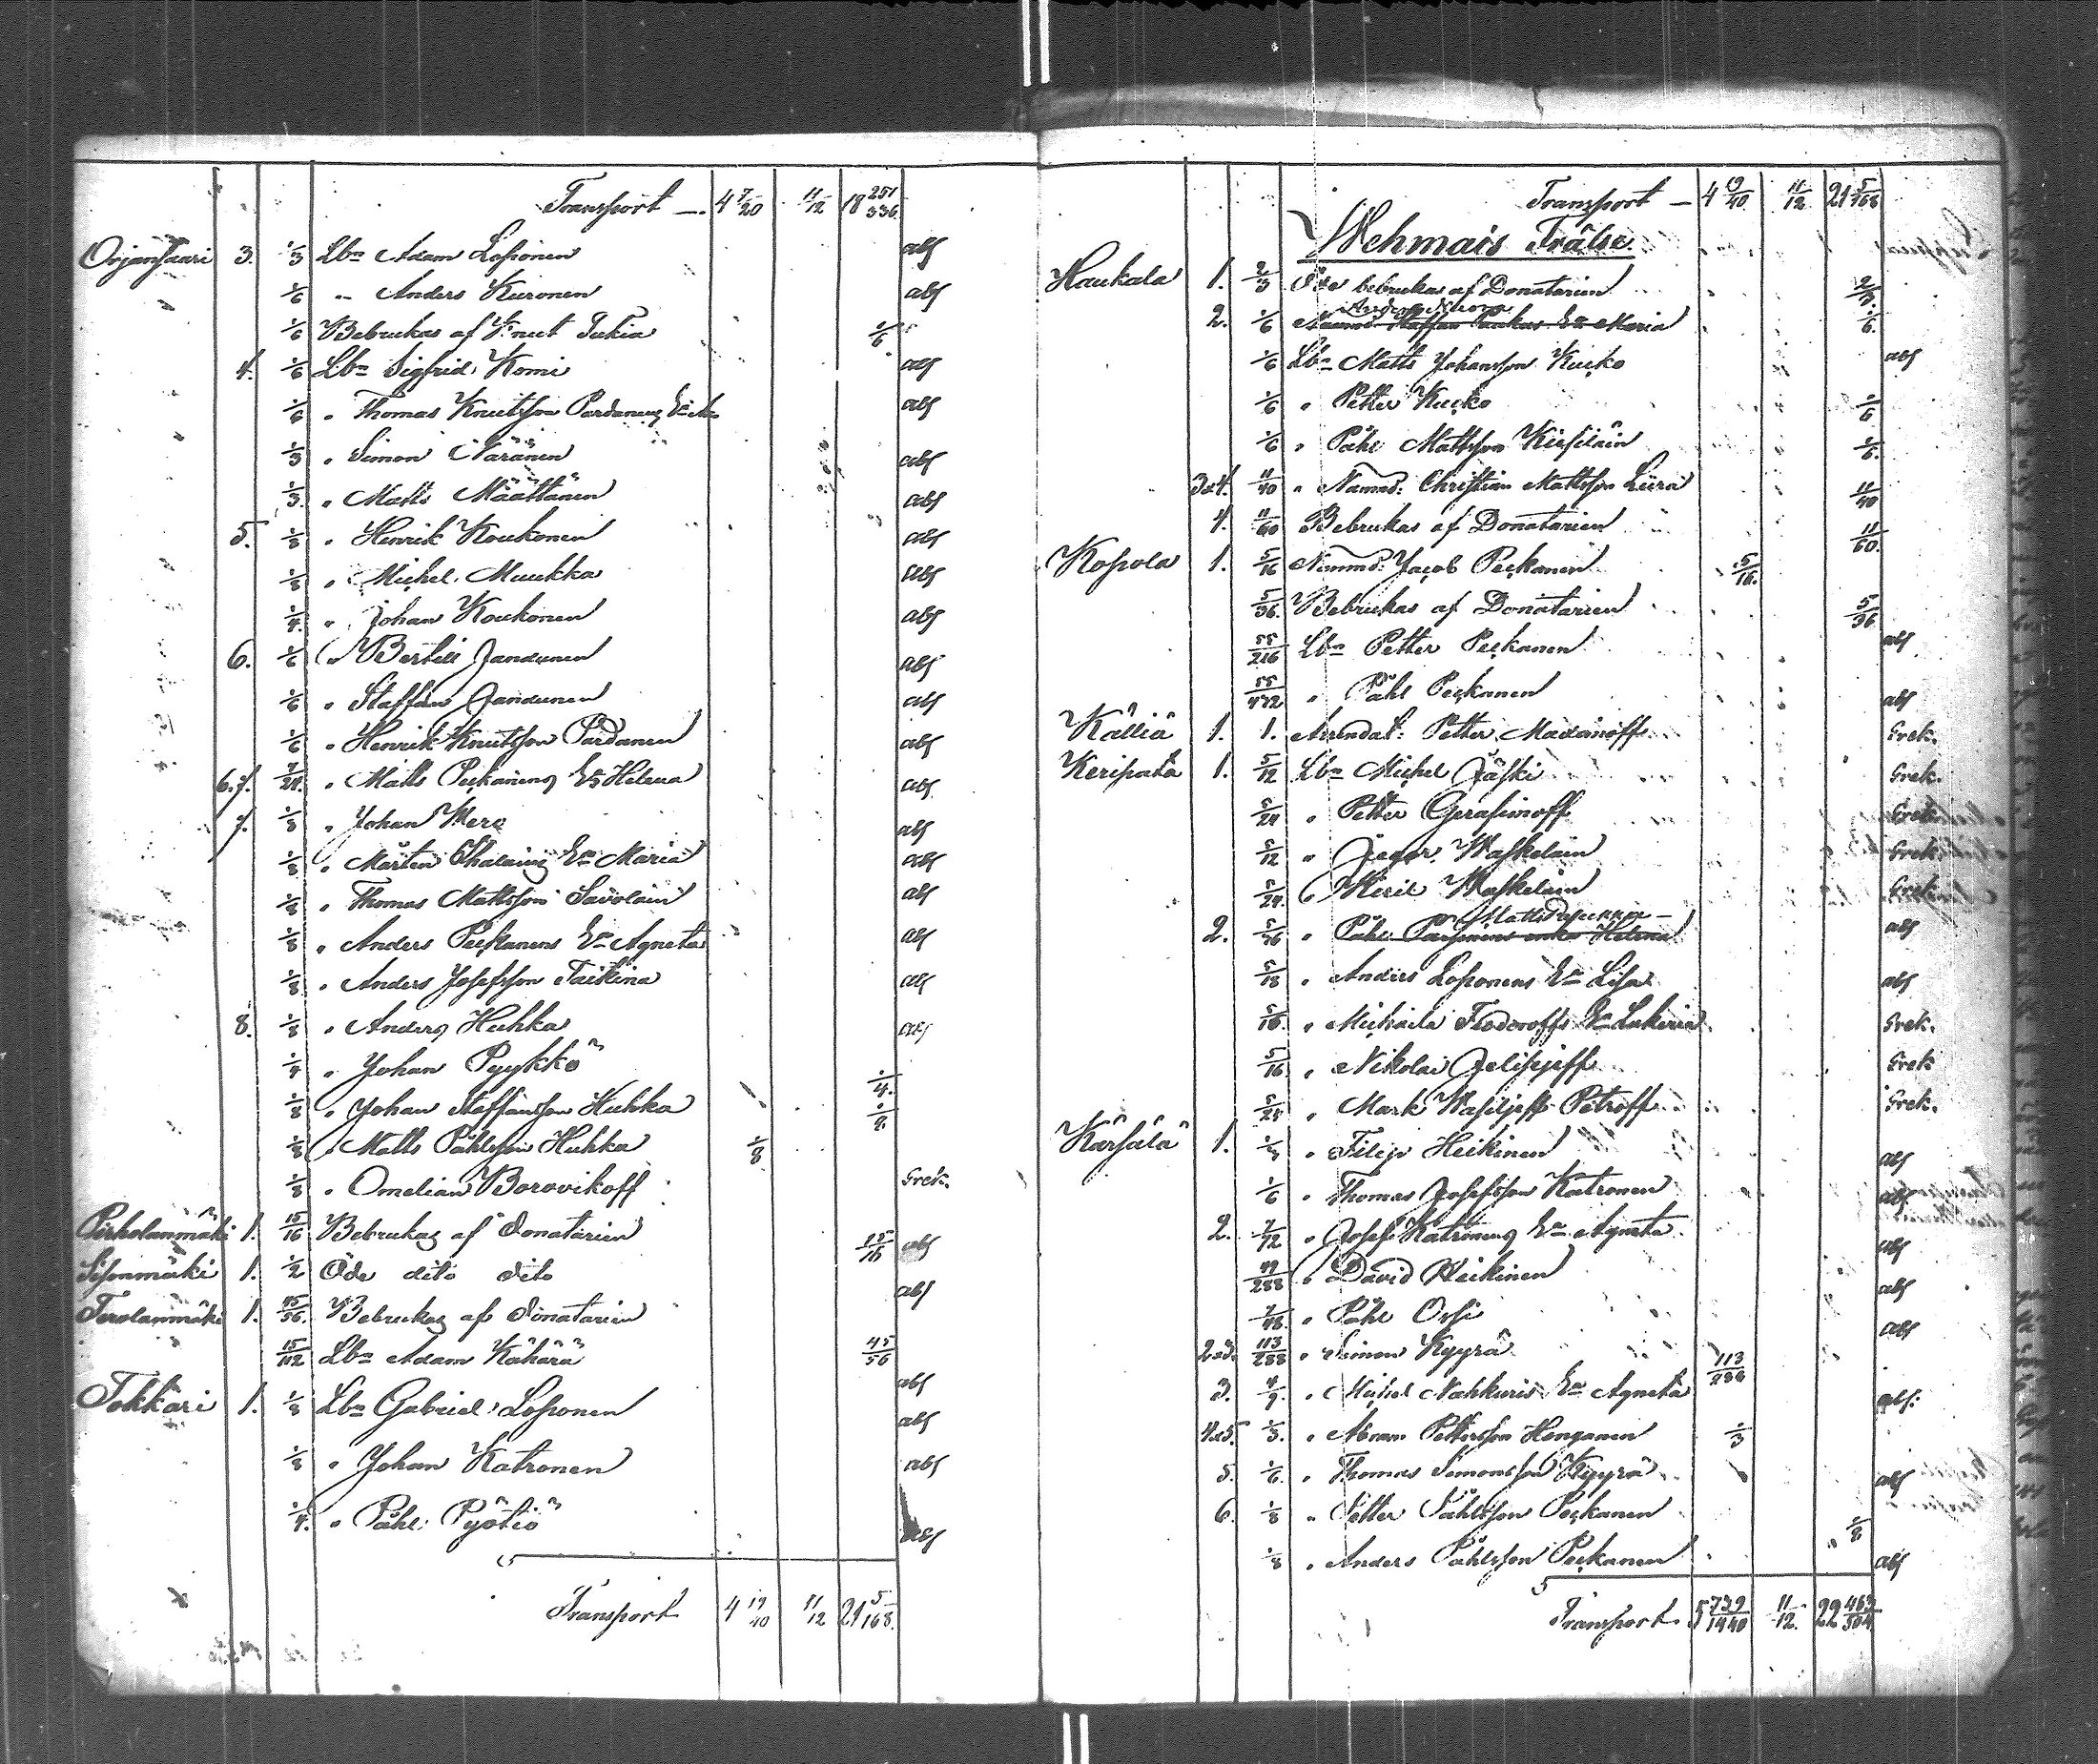 Transport — 4 7/20 11/12 18 251/336
Orjansaari 3. 1/3 Lbn Adam Loponen abs
1/6 " Anders Kuronen abs
1/6 Bebrukas af Knut Tukia 1/6
4. 1/6 Lbn Sigfrid Komi abs
1/6 " Thomas Knutsson Pardanens abs
1/3 " Simon Näränen abs
1/3 " Matts Määttänen abs
5. 1/8 " Henrik Koukonen abs
1/8 " Michel Muukka abs
1/4 " Johan Koukonen abs
6. 1/6 " Bertill Jandunen abs
1/6 " Staffan Jandunen abs
1/6 " Henrik Knutsson Pardanen abs
6.7. 7/24 " Matts Peckanens Ea Helena abs
7. 1/8 " Johan Mero abs
1/8 " Mårten Ea Maria abs
1/8 " Thomas Mattsson Savolain abs
1/8 " Anders Peckanens Ea Agneta abs
1/8 " Anders Josefsson Taikina abs
8. 1/8 " Anders Huhka abs
1/4 " Johan Pyykkö 1/4
1/8 " Johan Staffansson Huhka 1/8
1/8 " Matts Påhlsson Huhka 1/8
1/8 " Omelian Borovikoff Grek.
Pirholanmäki 1. 15/16 Bebrukas af Donatarien 15/16 abs
Sisonmäki 1. 1/2 Öde dito dito abs
Terolanmäki 1. 45/56 Bebrukas af Donatarien
15/112 Lbn Adam Kähärä 45/56
Tokkari 1. 1/8 Lbn Gabriel Loponen abs
1/8 " Johan Katronen abs
1/4 " Påhl Pyötiö abs
Transport 4 19/40 11/12 21 5/168
Transport — 4 19/40 11/12 21 5/168
Wehmais Frälse
Haukala 1. 2/3 Öde bebrukas af Donatarien 2/3
2. 1/6 Staffan Ea Maria 1/6
1/6 Lbn Matts Johansson Kucko abs
1/6 " Petter Kucko 1/6
1/6 " Påhl Mattsson Kirsilain 1/6
3&4. 11/40 " Nämnd: Christian Mattsson Liira 11/40
4. 11/60 Bebrukas af Donatarien 11/60
Kopola 1. 5/16 Nämnd: Jacob Peckanen 5/16
5/36 Bebrukas af Donatarien 5/36
55/216 Lbn Petter Peckanen abs
55/432 " Påhl Peckanen abs
Källiä 1. 1. Arendat: Petter Maxinoff Grek.
Keripata 1. 5/12 Lbn Michel Jäski Grek.
5/24 " Petter Gerasimoff Grek.
5/12 " Jegor Waskelain Grek.
5/24 " Kiril Waskelain Grek.
2. 5/36 " Påhl Parsinens enka Helena abs
5/18 " Anders Loponens Ea Lisa abs
5/16 " Michaila Feodoroffs Ea Lukeria Grek.
5/16 " Nikolai Jelisejeff Grek
5/24 " Mark Wasiljeff Petroff Grek.
Kärsälä 1. 1/4 " Filip Heikinen abs
1/6 " Thomas Josefsson Katronen abs
2. 7/12 " Josef Katronens Ea Agneta abs
49/288 " David Heikinen abs
7/48 " Påhl Orsi abs
2&3. 113/288 " Simon Kyyrä 113/288
3. 4/9 " Michel Nahkuris Ea Agneta abs:
4&5. 1/3 " Abram Pettersson Henganen 1/3
5. 1/6 " Thomas Simonsson Kyyrä abs
6. 1/8 " Petter Påhlsson Peckanen 1/8
1/8 " Anders Påhlsson Peckanen abs
Transport 5 739/1440 11/12 22 463/504